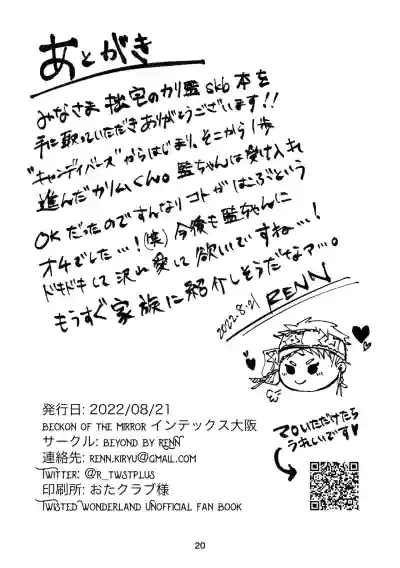 あとがき
みなさま 拙宅のカリ監skb本を
手に取っていただきありがとうございます!!
"キャンディバース"からはじまり。そこから1歩
進んだカリムくん。監ちゃんは受け入れ
OKだったのですんなりコトがはこぶという
オチでした…!(笑)今後も監ちゃんに
ドキドキして沢山愛して欲しいですね…!
もうすぐ家族に紹介しそうだなァ…。
2022.8.21 RENN
マロいただけたら
うれしいです♥
発行日: 2022/08/21
BECKON OF THE MIRROR インテックス大阪
サークル: BEYOND BY RENN
連絡先: RENN.KIRYU@GMAIL.COM
TWITTER: @R_TWSTPLUS
印刷所: おたクラブ様
TWISTED WONDERLAND UNOFFICIAL FAN BOOK
20